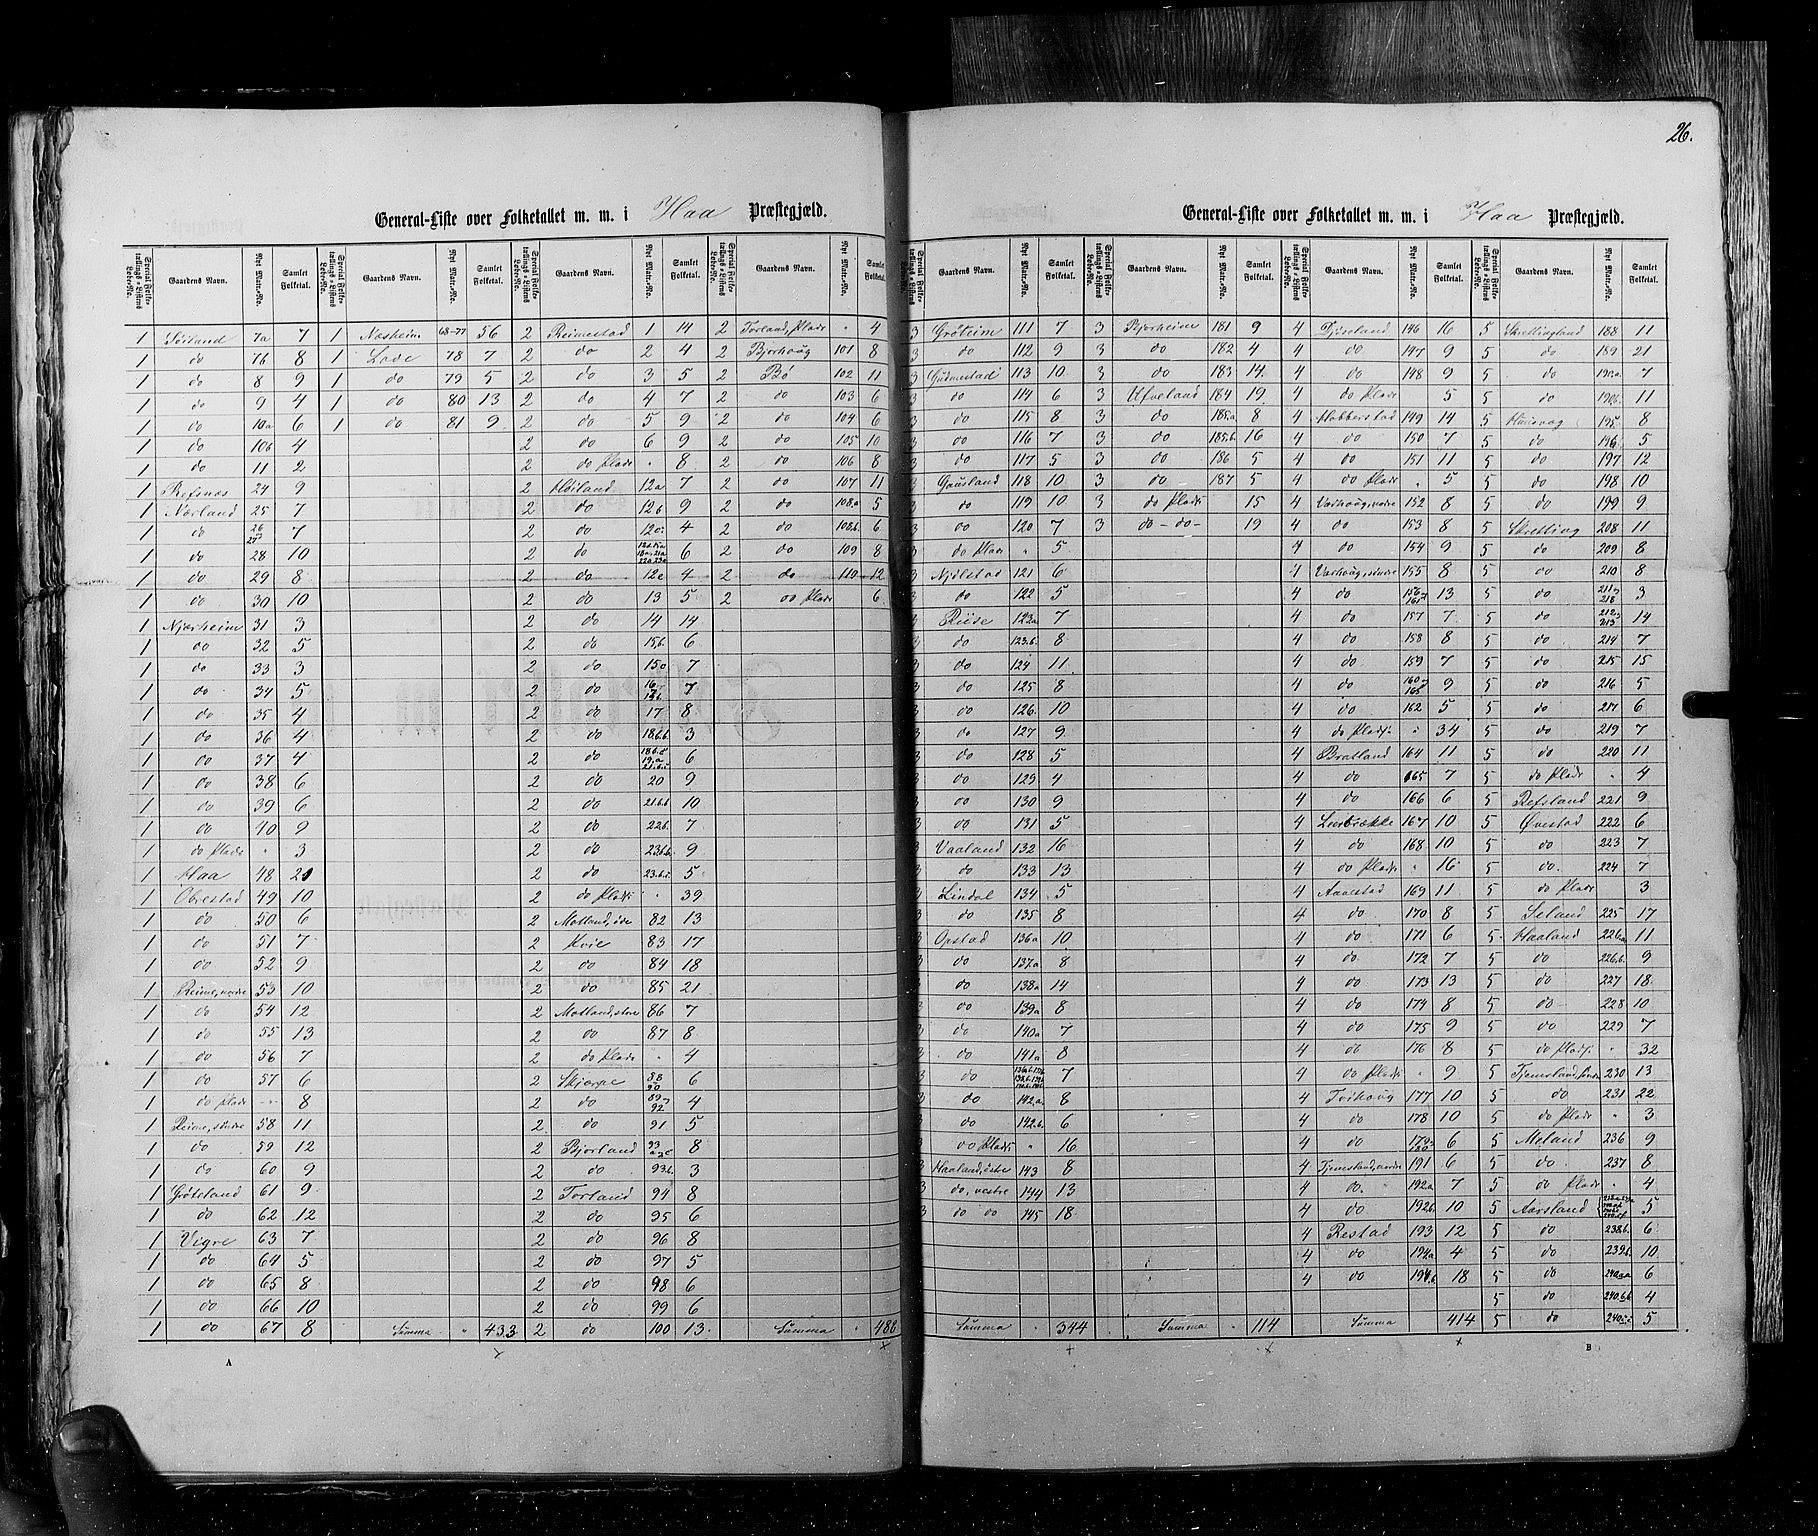 26.
General-Liste over Folketallet m. m. i Haa Præstegjæld.
Special Folketællings-Listens Løbe-No. Gaardens Navn. Nyt Matr.-No. Samlet Folketal. Special Folketællings-Listens Løbe-No. Gaardens Navn. Nyt Matr.-No. Samlet Folketal. Special Folketællings-Listens Løbe-No. Gaardens Navn. Nyt Matr.-No. Samlet Folketal. Special Folketællings-Listens Løbe-No. Gaardens Navn. Nyt Matr.-No. Samlet Folketal.
1 Søiland 7a 7 1 Næsheim 68-77 56 2 Reimestad 1 14 2 Torland, Plads " 4
1 do 7b 8 1 Lode 78 7 2 do 2 4 2 Bjorhoug 101 8
1 do 8 9 1 do 79 5 2 do 3 5 2 Bø 102 11
1 do 9 4 1 do 80 13 2 do 4 7 2 do 103 6
1 do 10a 6 1 do 81 9 2 do 5 9 2 do 104 6
1 do 10b 4 2 do 6 9 2 do 105 10
1 do 11 2 2 do Plads " 8 2 do 106 8
1 Refsnæs 24 9 2 Høiland 12a 7 2 do 107 11
1 Nærland 25 7 2 do 12b 9 2 do 108.a 5
1 do 26 27 7 2 do 12c 4 2 do 108.b. 6
1 do 28 10 2 do 6 2 do 109 8
1 do 29 8 2 do 12e 4 2 do 110 12
1 do 30 10 2 do 13 5 2 do Plads 6
1 Njærheim 31 3 2 do 14 14
1 do 32 5 2 do 15.b. 6
1 do 33 3 2 do 7
1 do 34 5 2 do 7
1 do 35 4 2 do 17 8
1 do 36 4 2 do 18.b.b. 3
1 do 37 4 2 do 6
1 do 38 6 2 do 20 9
1 do 39 6 2 do 21.b.b 10
1 do 40 9 2 do 22b. 7
1 do Plads " 3 2 do 23b.b. 9
1 Haa 48 21 2 do 23.b.c. 5
1 Obrestad 49 10 2 do Plads " 39
1 do 50 6 2 Motland, 82 13
1 do 51 7 2 Kvie 83 17
1 do 52 9 2 do 84 18
1 Reime, nordre 53 10 2 do 85 21
1 do 54 12 2 Motland, store 86 7
1 do 55 13 2 do 87 8
1 do 56 7 2 do Plads " 4
1 do 57 6 2 Skjærpe 88 90 6
1 do Plads " 8 2 do 89 92 4
1 Reime, søndre 58 11 2 do 91 5
1 do 59 12 2 Bjorland 8
1 do 60 9 2 do 93.b. 3
1 Grøteland 61 9 2 Torland 94 8
1 do 62 12 2 do 95 6
1 Vigre 63 7 2 do 96 8
1 do 64 5 2 do 97 5
1 do 65 8 2 do 98 6
1 do 66 10 2 do 99 6
1 do 67 8 Summa " 433 2 do 100 13 Summa " 488
A
General-Liste over Folketallet m. m. i Haa Præstegjæld.
Special Folketællings-Listens Løbe-No. Gaardens Navn. Nyt Matr.-No. Samlet Folketal. Special Folketællings-Listens Løbe-No. Gaardens Navn. Nyt Matr.-No. Samlet Folketal. Special Folketællings-Listens Løbe-No. Gaardens Navn. Nyt Matr.-No. Samlet Folketal. Special Folketællings-Listens Løbe-No. Gaardens Navn. Nyt Matr.-No. Samlet Folketal.
3 Grødeim 111 7 3 Bjorheim 181 9 4 146 16 5 Skrettingland 188 11
3 do 112 9 3 do 182 4 4 do 147 9 5 do 189 21
3 Gudmestad 113 10 3 do 183 14. 4 do 148 9 5 do 190.a. 7
3 do 114 6 3 Ufveland 184 19 4 do Plads 5 5 do 190b. 11
3 do 115 8 3 do 185.a 8 4 Hobberstad 149 14 5 195 8
3 do 116 7 3 do 185.b. 16 4 do 150 7 5 do 196 5
3 do 117 5 3 do 186 5 4 do 151 11 5 do 197 12
3 Gausland 118 10 3 do 187 5 4 do Plads " 5 5 do 198 10
3 do 119 10 3 do Plads 15 4 Varhoug, nordre 152 8 5 do 199 9
3 do 120 7 3 do - do - 19 4 do 153 8 5 Skretting 208 11
3 do Plads " 5 4 do 154 9 5 do 209 8
3 Njølstad 121 6 4 Varhoug, søndre 155 8 5 do 210 8
3 do 122 5 4 do 13 5 do 3
3 Riise 123a 7 4 do 157 7 5 do 14
3 do 123.b. 8 4 do 158 8 5 do 214 7
3 do 124 11 4 do 159 7 5 do 215 15
3 do 125 8 4 do 9 5 do 216 5
3 do 126. 10 4 do 162 5 5 do 217 6
3 do 127 9 4 do Plads. " 34 5 do 219 7
3 do 128 5 4 Bratland 164 11 5 do 220 11
3 do 129 4 4 do 165 7 5 do Plads " 4
3 do 130 9 4 do 166 6 5 Refsland 221 9
3 do 131 5 4 Leerbrække 167 10 5 Øvestad 222 6
3 Vaaland 132 16 4 do 168 10 5 do 223 7
3 do 133 13 4 do Plads " 16 5 do. 224 7
3 Lindal 134 5 4 Aarestad 169 11 5 do Plads 3
3 do 135 8 4 do 170 8 5 Seland 225 17
3 Opstad 136a 10 4 do 171 6 5 Haaland 226.a 11
3 do 137.a 8 4 do 172 7 5 do 226.b. 9
3 do 138a 14 4 do 173 13 5 do 227 18
3 do 139a 8 4 do 174 8 5 do 228 10
3 do 140a 7 4 do 175 9 5 do 229 7
3 do 141a 8 4 do 176 8 5 do Plads. " 32
3 do 7 4 do Plads " 9 5 Tjemsland, søndre 230 13
3 do 142.a. 8 4 Tvihoug 177 10 5 do 231 22
3 do 142.b. 6 4 do 178 10 5 do Plads " 3
3 do Plads " 16 4 do 6 5 Meland 236 9
3 Haaland, østre 143 8 4 Tjemsland, nordre 191 6 5 do 237 8
3 do, vestre 144 13 4 do. 192a 7 5 do Plads " 4
3 do do 145 18 4 do 192b. 10 5 Aarsland 5
4 Restad 193 12 5 do 238.b. 6
4 do 194a 4 5 do 239b. 10
4 do 194.b 18 5 do 240.a.a 6
5 do 240.b.b. 4
Summa " 344 Summa " 114 Summa 414 5 do 240.c.c 5
B